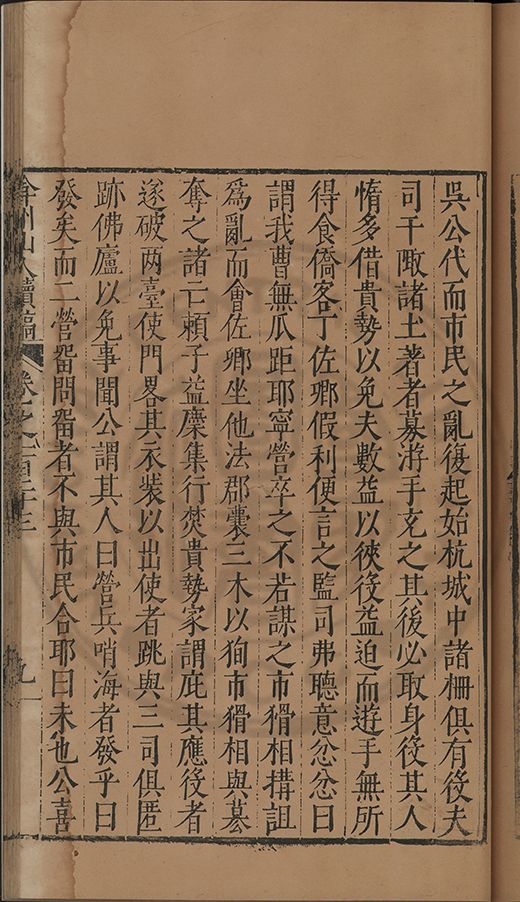 吳公代而市民之亂復起始杭城中諸柵俱有役夫
司干陬諸土著者募游手充之其後必取身役其人
惰多借貴勢以免夫數益以狹役益迫而遊手無所
得食僑客丁佐卿假利便言之監司弗聽意忿忿曰
謂我曹無瓜距耶寧營卒之不若謀之市猾相搆詛
為亂而會佐卿坐他法郡囊三木以狥市猾相與募
奪之諸亡賴子益麇集行焚貴勢家謂庇其應役者
遂破两臺使門畧其衣裝以出使者跳與三司俱匿
跡佛廬以免事聞公謂其人曰營兵哨海者發乎曰
發矣而二營畱問畱者不與市民合耶曰未也公喜
弇州山人續稿 卷之一百三十三 九